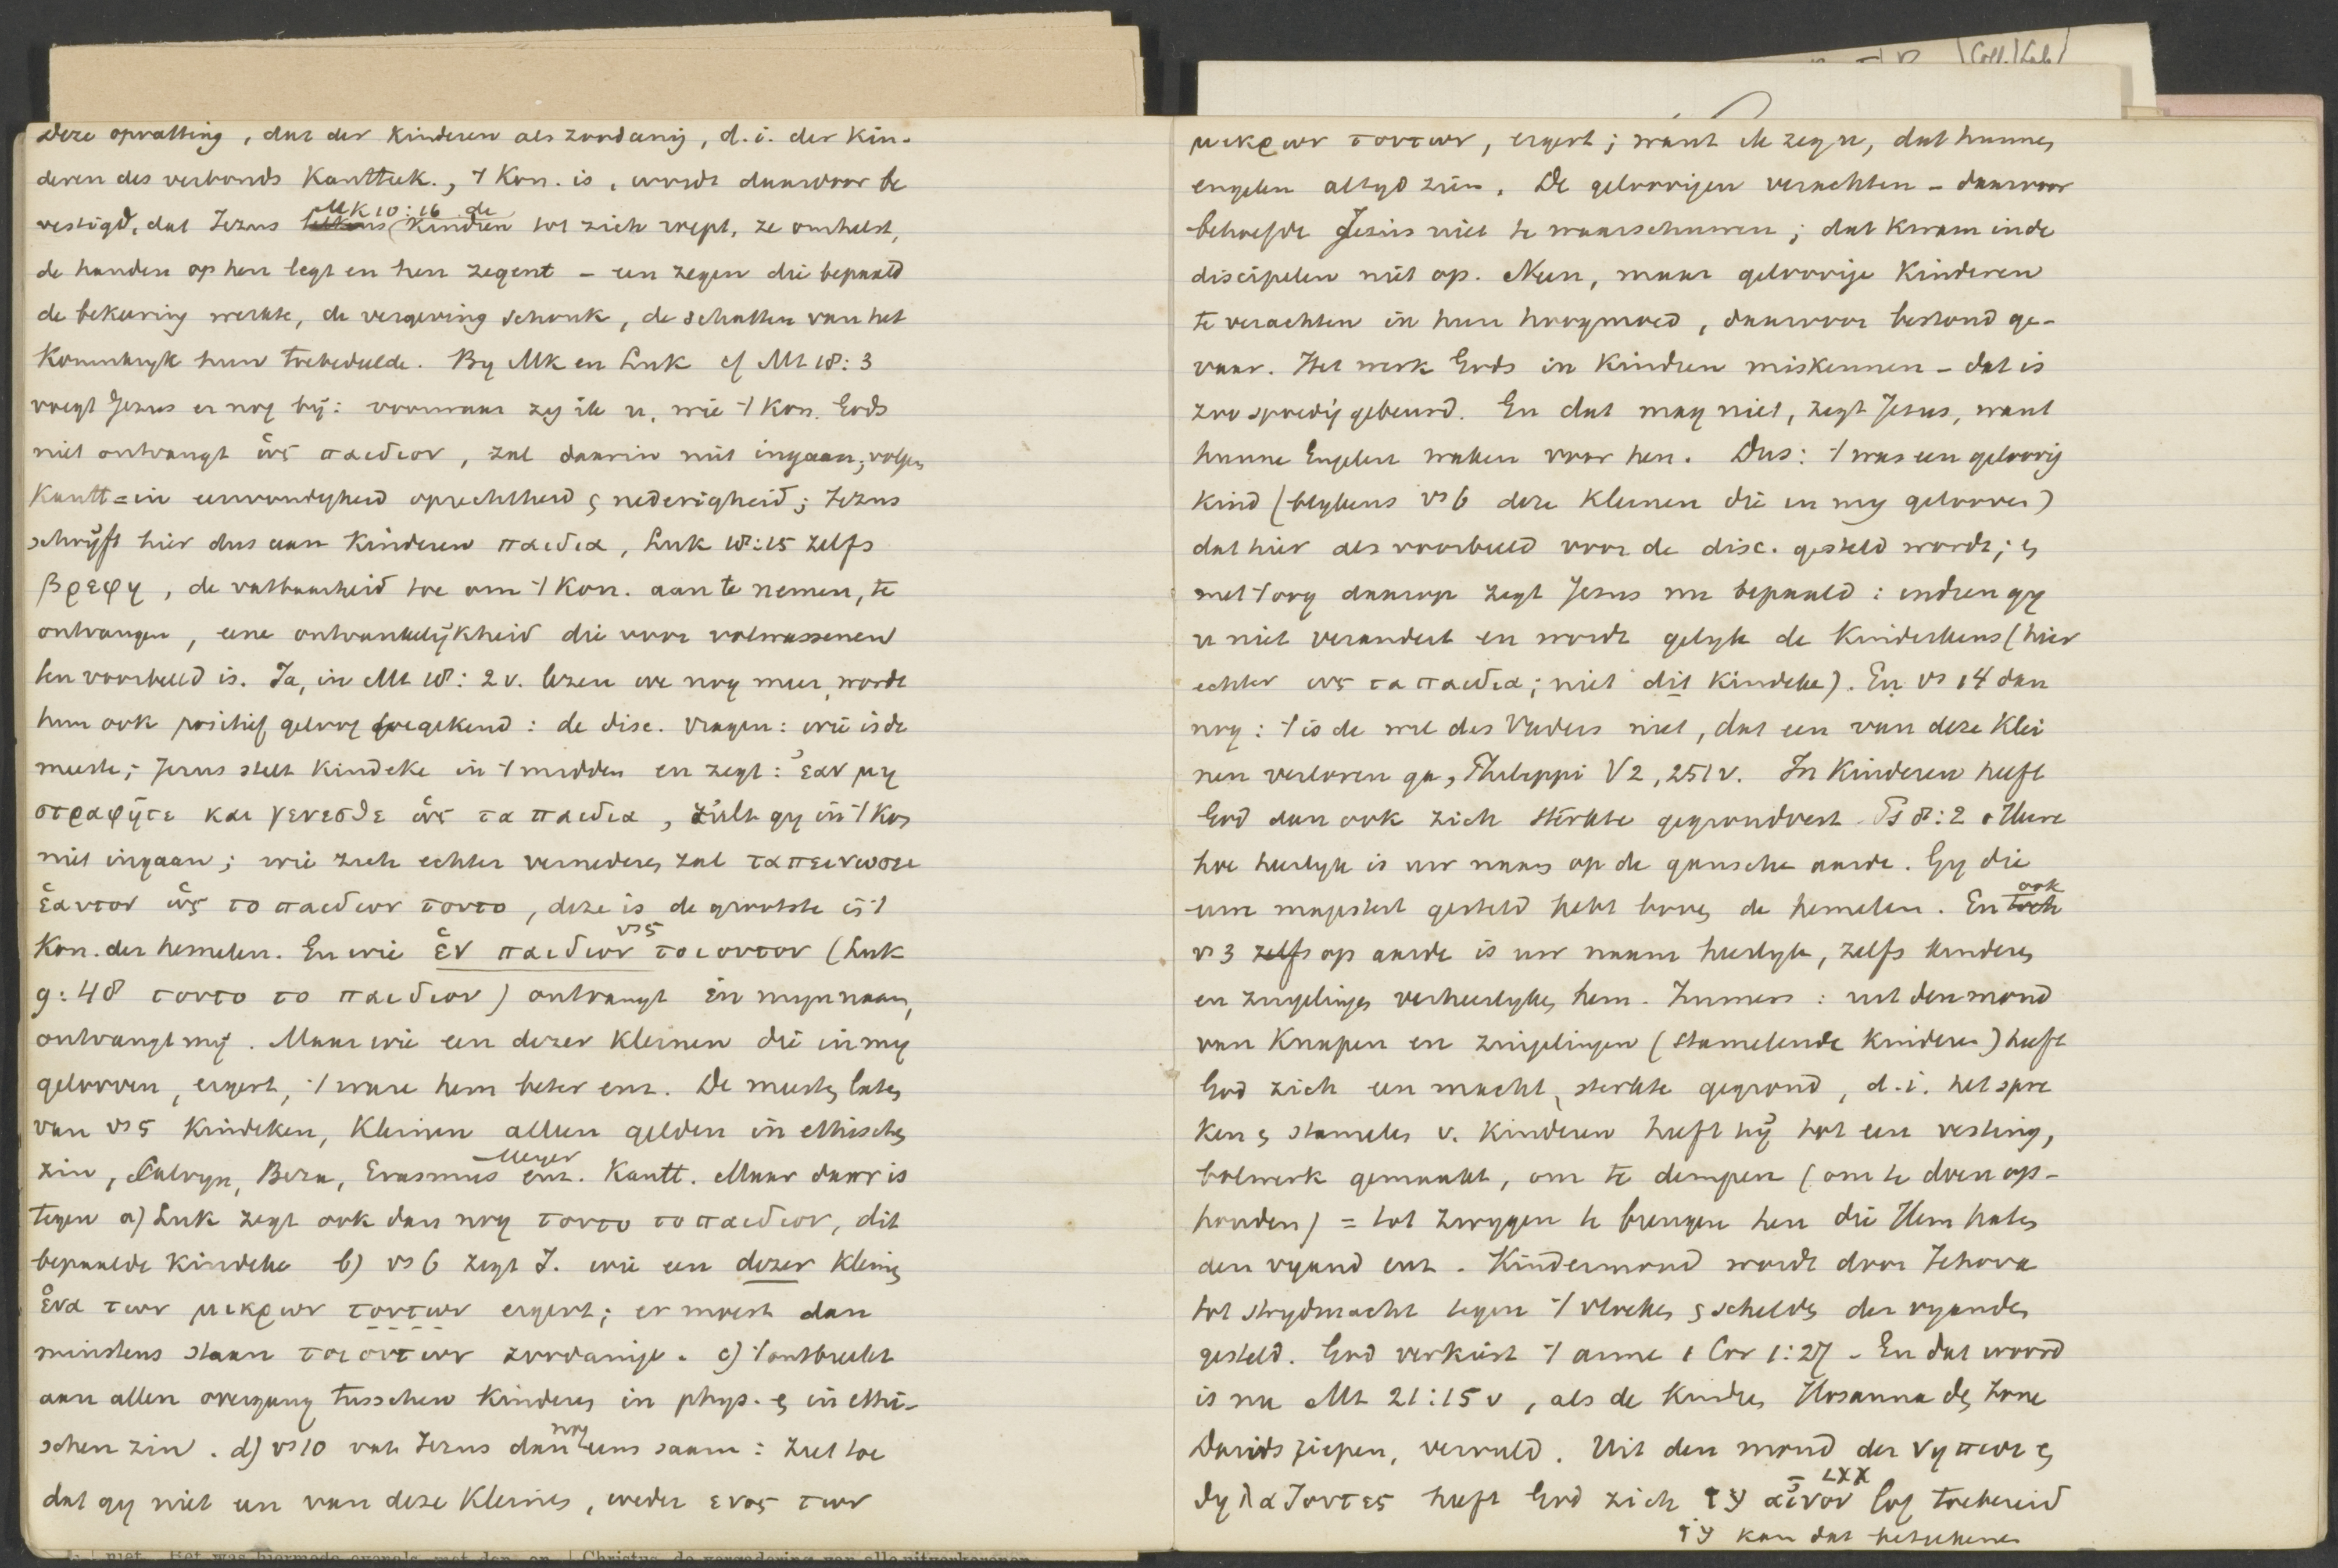 Deze opvatting, dat der kinderen als zoodanig, d.i. der kin-
deren des verbonds Kanttek., 't Kon. is, wordt daardoor be
vestigd, dat Jezus Mk 10:16 de kindren tot zich roept, ze omhelst,
de handen op hen legt en hen zegent - een zegen die bepaald
de bekeering werkte, de vergeving schonk, de schatten van het
Koninkryk hun toebedeelde. By Mk en Luk cf Mt 18:3
voegt Jezus er nog bij: voorwaar zeg ik u, wie 't Kon. Gods
niet ontvangt ὡς παιδιον, zal daarin niet ingaan; volgens
Kantt = in eenvoudigheid oprechtheid & nederigheid; Jezus
schrijft hier dus aan kinderen παιδια, Luk 18:15 zelfs
βρεφη, de vatbaarheid toe om 't Kon. aan te nemen, te
ontvangen, eene ontvankelijkheid die voor volwassenen
ten voorbeeld is. Ja, in Mt 18:2 v. lezen we nog meer, wordt
hun ook positief geloof toegekend: de disc. vragen: wie is de
meeste; Jezus stelt kindeke in 't midden en zegt: ἐαν μη
στραφῆτε και γενεσθε ὡς τα παιδια, zult gy in 't Kon
niet ingaan; wie zich echter vernederen zal ταπεινωσει
ἑαυτον ὡς το παιδιον τουτο, deze is de grootste in 't
Kon. der hemelen. En wie vs 5 ἑν παιδιον τοιουτον (Luk
9:48 τουτο το παιδιον) ontvangt in mijn naam,
ontvangt mij. Maar wie een dezer kleinen die in my
gelooven, ergert, 't ware hem beter enz. De meesten laten
van vs 5 kindeken, kleinen alleen gelden in ethischen
zin, Calvyn, Beza, Erasmus Meyer enz. Kantt. Maar daar is
tegen a) Luk zegt ook dan nog τουτο το παιδιον, dit
bepaalde kindeke b) vs 6 zegt J. wie een dezer kleinen
ἑνα των μικρων τουτων ergert; er moest dan
minstens staan τοιουτων zoodanige. c) 't ontbreekt
aan allen overgang tusschen kinderen in phys. & in ethi-
schen zin. d) vs 10 vat Jezus dan nog eens saam: ziet toe
dat gy niet een van deze kleinen, ενος των
μικρων τουτων, ergert; want ik zeg u, dat hunnen
engelen altyd zien. De geloovigen verachten - daarvoor
behoefde Jezus niet te waarschuwen; dat kwam in de
discipelen niet op. Neen, maar geloovige kinderen
te verachten in hun hoogmoed, daarvoor bestond ge-
vaar. Het werk Gods in kindren miskennen - dat is
zoo spoedig gebeurd. En dat mag niet, zegt Jezus, want
hunne Engelen waken voor hen. Dus: 't was een geloovig
kind (blykens vs 6 deze kleinen die in my gelooven)
dat hier als voorbeeld voor de disc. gesteld wordt; &
met 't oog daarop zegt Jezus nu bepaald: indien gy
u niet verandert en wordt gelyk de kinderkens (hier
echter ὡς τα παιδια; niet dit kindeke). En vs 14 dan
nog: 't is de wil des Vaders niet, dat een van deze klei
nen verloren ga, Philippi V 2, 251 v. In kinderen heeft
God dan ook zich sterkte gegrondvest Ps 8:2 o Heere
hoe heerlyk is uw naam op de gansche aarde. Gy die
uwe majesteit gesteld hebt boven de hemelen. En ook
vs 3 zelfs op aarde is uw naam heerlyk, zelfs kinderen
en zuigelingen verheerlyken hem. Immers: uit den mond
van knapen en zuigelingen (stamelende kinderen) heeft
God zich een macht, sterkte gegrond, d.i. het spre
ken & stamelen v. kinderen heeft hij tot een vesting,
bolwerk gemaakt, om te dempen (om te doen op-
houden) = tot zwygen te brengen hen die Hem haten
den vyand enz. Kindermond wordt door Jehova
tot strydmacht tegen 't vloeken & schelden der vyanden
gesteld. God verkiest 't arme 1 Cor 1:27 - En dat woord
is nu Mt 21:15 v, als de kindren Hosanna den Zone
Davids riepen, vervuld. Uit den mond der νηπιοι &
θηλαζοντες heeft God zich עז LXX αἶνον lof toebereid
עז kan dat beteekenen